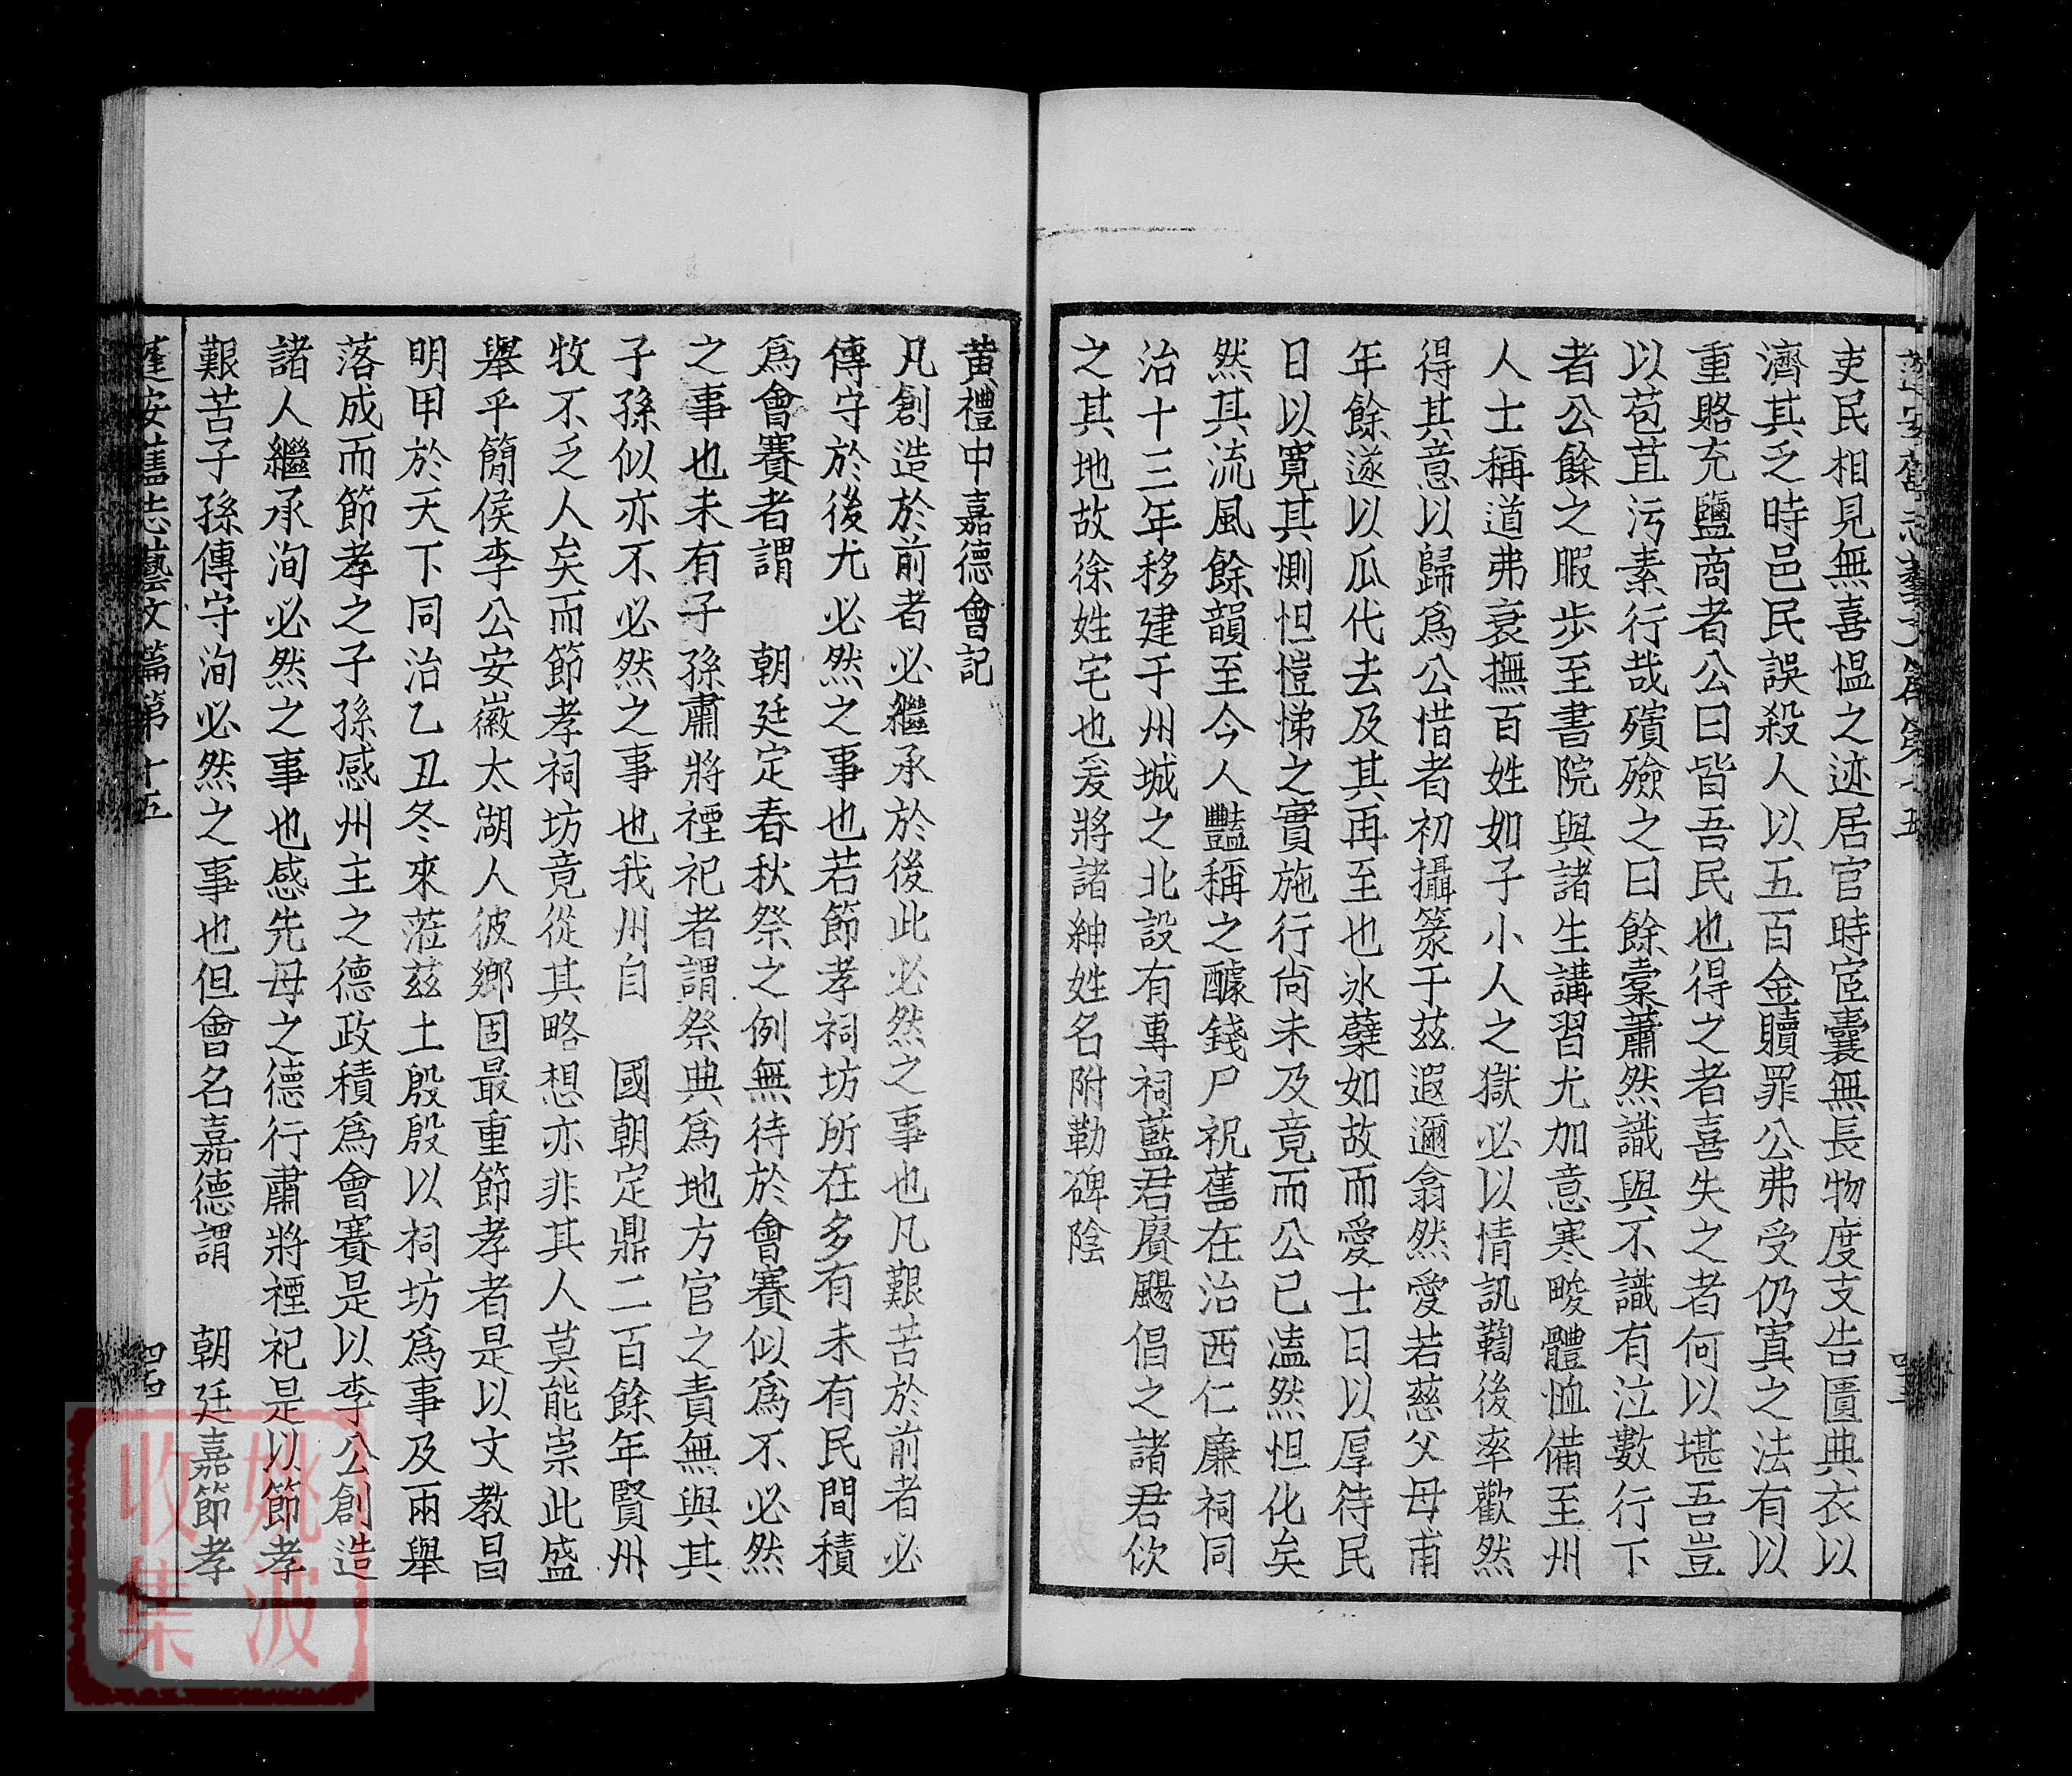 吏民相見無喜愠之迹居官時宦囊無長物度支告匱典衣以
濟其乏時邑民誤殺人以五百金贖罪公弗受仍寘之法有以
重賂充鹽商者公曰皆吾民也得之者喜失之者何以堪吾豈
以苞苴污素行哉殯殮之日餘橐蕭然識與不識有泣數行下
者公餘之暇步至書院與諸生講習尤加意寒畯體恤備至州
人士稱道弗衰撫百姓如子小人之獄必以情訊鞫後率歡然
得其意以歸爲公惜者初攝篆于茲遐邇翕然愛若慈父母甫
年餘遂以瓜代去及其再至也氷蘖如故而愛士日以厚待民
日以寛其惻怛愷悌之實施行尚未及竟而公已溘然怛化矣
然其流風餘韻至今人豔稱之醵錢尸祝舊在治西仁廉祠同
治十三年移建于州城之北設有專祠藍君賡颺倡之諸君佽
之其地故徐姓宅也爰將諸紳姓名附勒碑陰
黃禮中嘉德會記
凡創造於前者必繼承於後此必然之事也凡艱苦於前者必
傳守於後尤必然之事也若節孝祠坊所在多有未有民間積
爲會賽者謂　朝廷定春秋祭之例無待於會賽似爲不必然
之事也未有子孫肅將禋祀者謂祭典爲地方官之責無與其
子孫似亦不必然之事也我州自　國朝定鼎二百餘年賢州
牧不乏人矣而節孝祠坊竟從其略想亦非其人莫能崇此盛
舉乎簡侯李公安徽太湖人彼鄉固最重節孝者是以文教昌
明甲於天下同治乙丑冬來蒞茲土殷殷以祠坊爲事及兩舉
落成而節孝之子孫感州主之德政積爲會賽是以李公創造
諸人繼承洵必然之事也感先母之德行肅將禋祀是以節孝
艱苦子孫傳守洵必然之事也但會名嘉德謂　朝廷嘉節孝
蓬安舊志藝文篇第十五
四四
姚波
收集